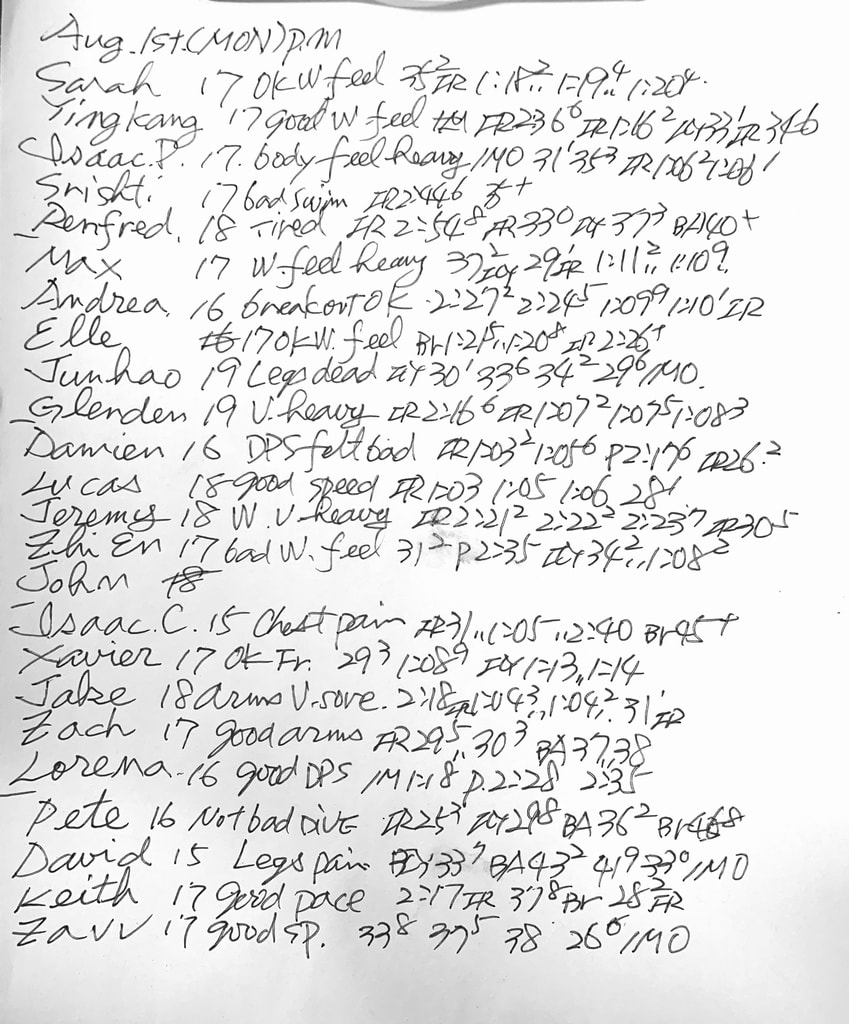 Aug. 1st. (MON) p.m
Sarah 17 OK W feel 35² FR 1:18²,, 1:19⁴,, 1:20⁴.
Yingkang 17 good W feel FR 2:36⁶ FR 1:16² FLY 33¹ FR 34⁶
Isaac.P. 17. body feel heavy IMO 31¹ 35³ FR 1:06² 1:06¹
Srishti 17 bad swim FR 2:44⁶
Renfred. 18 Tired FR 2:54⁸ FR 33⁰ FLY 37³ BA 40⁺
Max 17 W-feel heavy 37² FLY 29¹ FR 1:11²,, 1:10⁹.
Andrea. 16 breakout OK 2:27² 2:24⁵ 1:09⁹ 1:10¹ FR
Elle 17 OK W. feel Br 1:21⁵,, 1:20⁸ FR 2:26⁺
Junhao 19 Legs dead FLY 30¹ 33⁶ 34² 29⁶ IMO.
Glenden 19 V. heavy FR 2:16⁶ FR 1:07² 1:07⁵ 1:08³
Damien 16 DPS felt bad FR 1:03² 1:05⁶ P 2:17⁶ FR 26.²
Lucas 18 good speed FR 1:03 1:05 1:06 28¹
Jeremy 18 W. V-heavy FR 2:21² 2:22² 2:23⁷ FR 30⁵
Zhi En 17 bad W. feel 31² P 2:35 FLY 34²,, 1:08²
John
Isaac. C. 15 Chest pain FR 31,, 1:05,, 2:40 Br 45⁺
Xavier 17 OK Fr. 29³ 1:08⁹ FLY 1:13,, 1:14
Jake 18 arms V. sore. 2:18 FR 1:04³,, 1:04²,, 31¹ FR
Zach 17 good arms FR 29⁵,, 30³ BA 37,, 38
Lorena. 16 good DPS IM 1:18 P. 2:28 2:35
Pete 16 Not bad DIVE FR 25³ FLY 29⁸ BA 36² Br
David 15 Legs pain FLY 33⁷ BA 43² 41⁹ 33⁰ IMO
Keith 17 good pace 2:17 FR 37⁸ Br 28² FR
Zavv 17 good SP. 33⁸ 37⁵ 38 26⁶ IMO